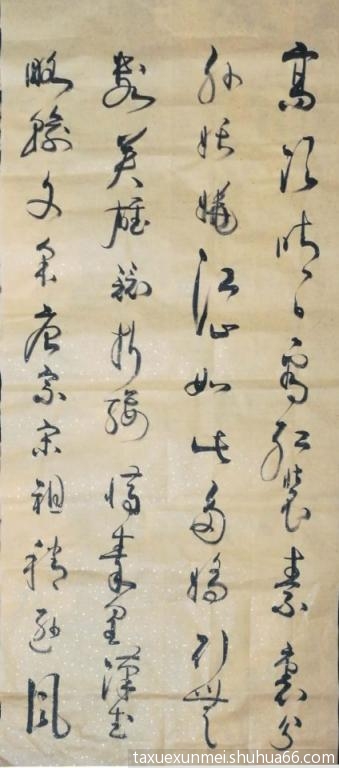 高須晴日看紅裝素裹分
外妖嬈江山如此多嬌引無
數英雄競折腰惜秦皇漢武
略輸文采唐宗宋祖稍遜風
taxuexunmei.shuhua66.com